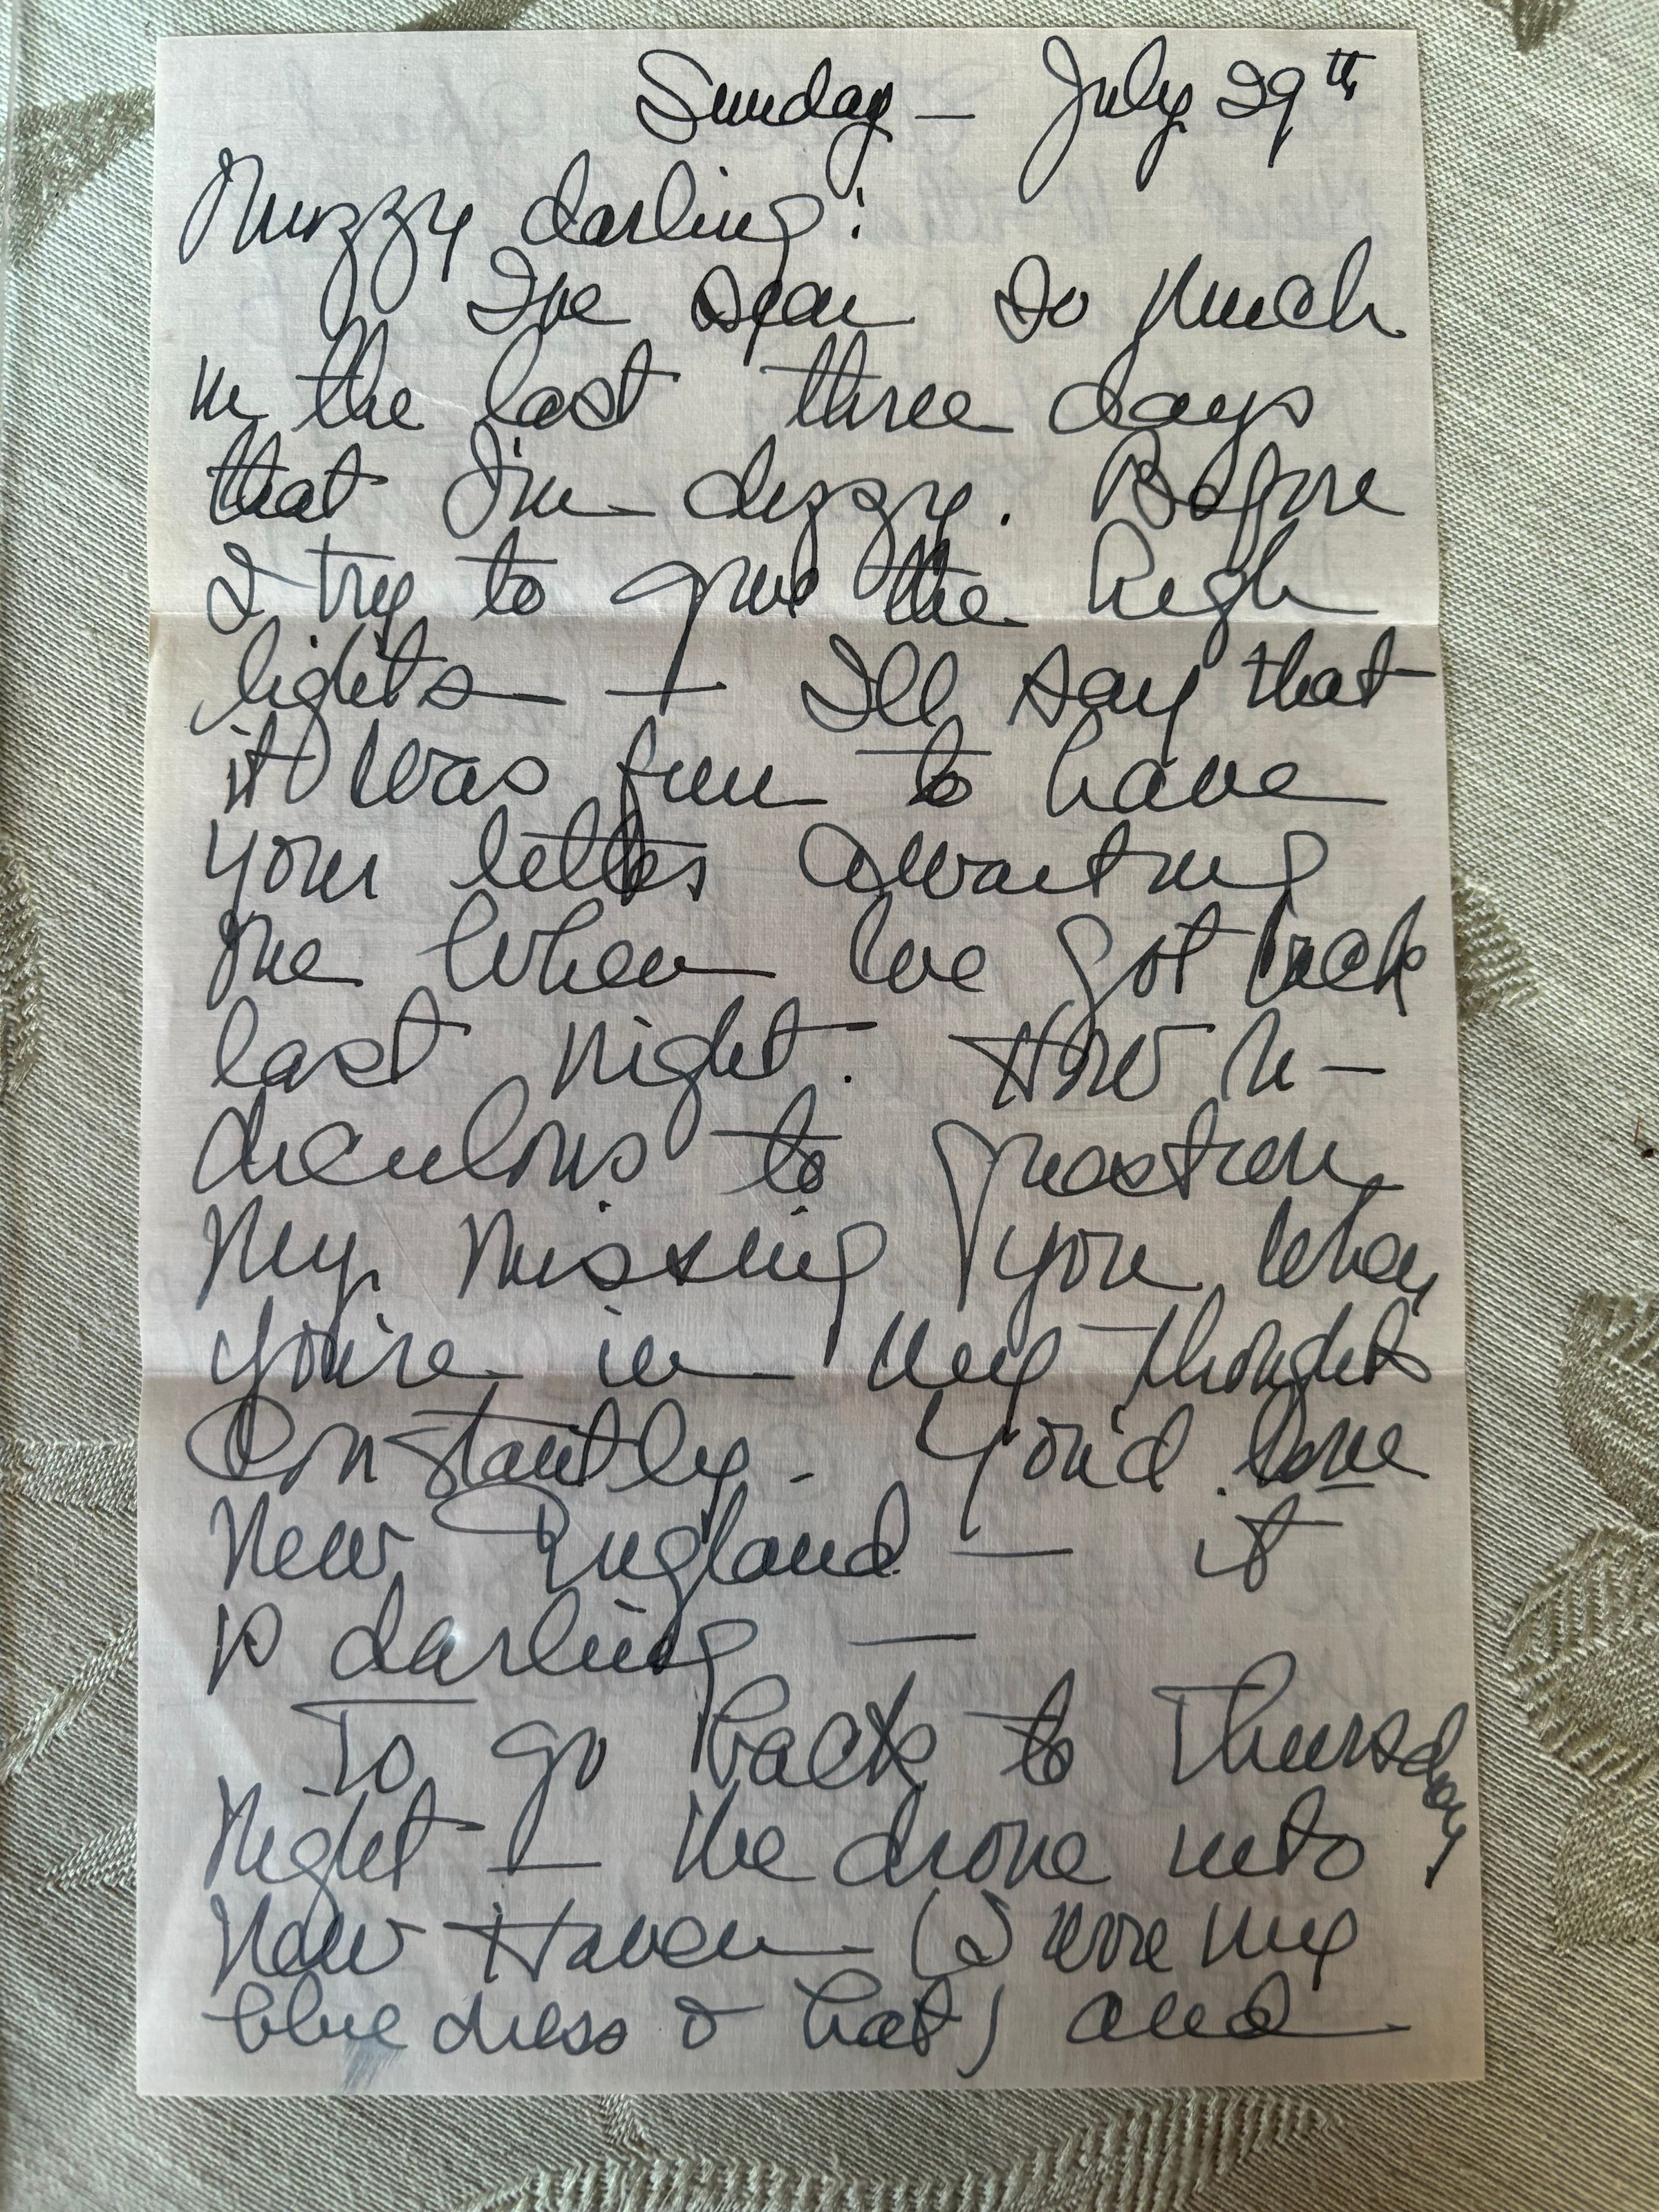 Sunday — July 29th
Muzzy darling:
I've seen so much
in the last three days
that I'm dizzy. Before
I try to give the high
lights — I'll say that
it was fun to have
your letters awaiting
me when we got back
last night. How ri-
diculous to question
my missing you when
you're in my thoughts
constantly. You'd love
New England — it
is darling —
To go back to Thursday
night — We drove into
New Haven (I wore my
blue dress & hat) and